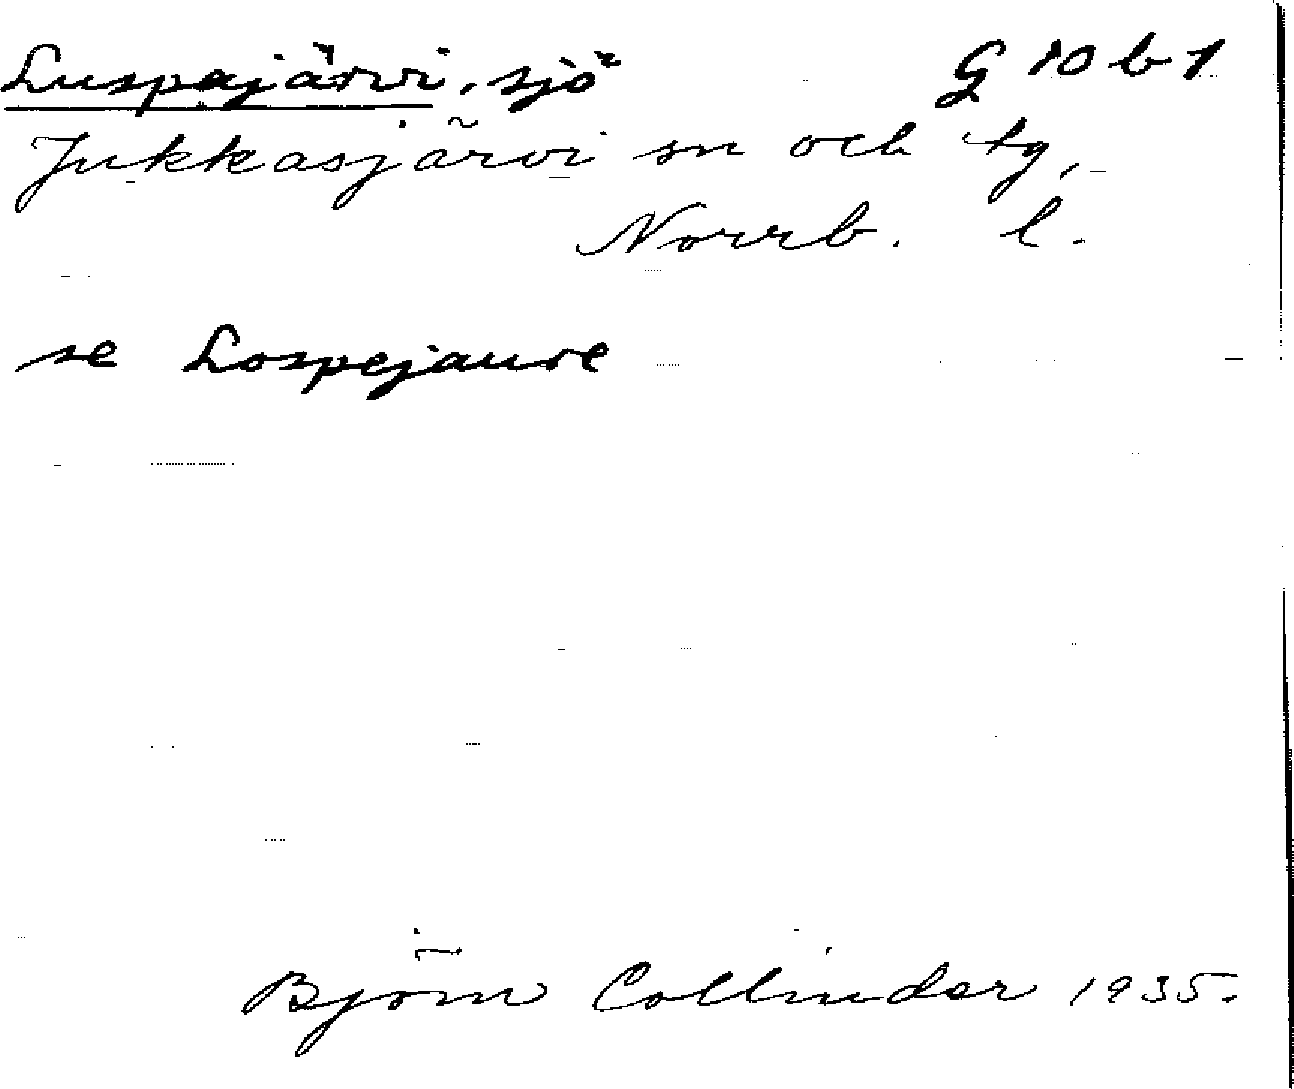 Luspajärvi, sjö G 10 b 1
Jukkasjärvi sn och tg,
Norrb. l.
se Lospejaure
Björn Collinder 1935.